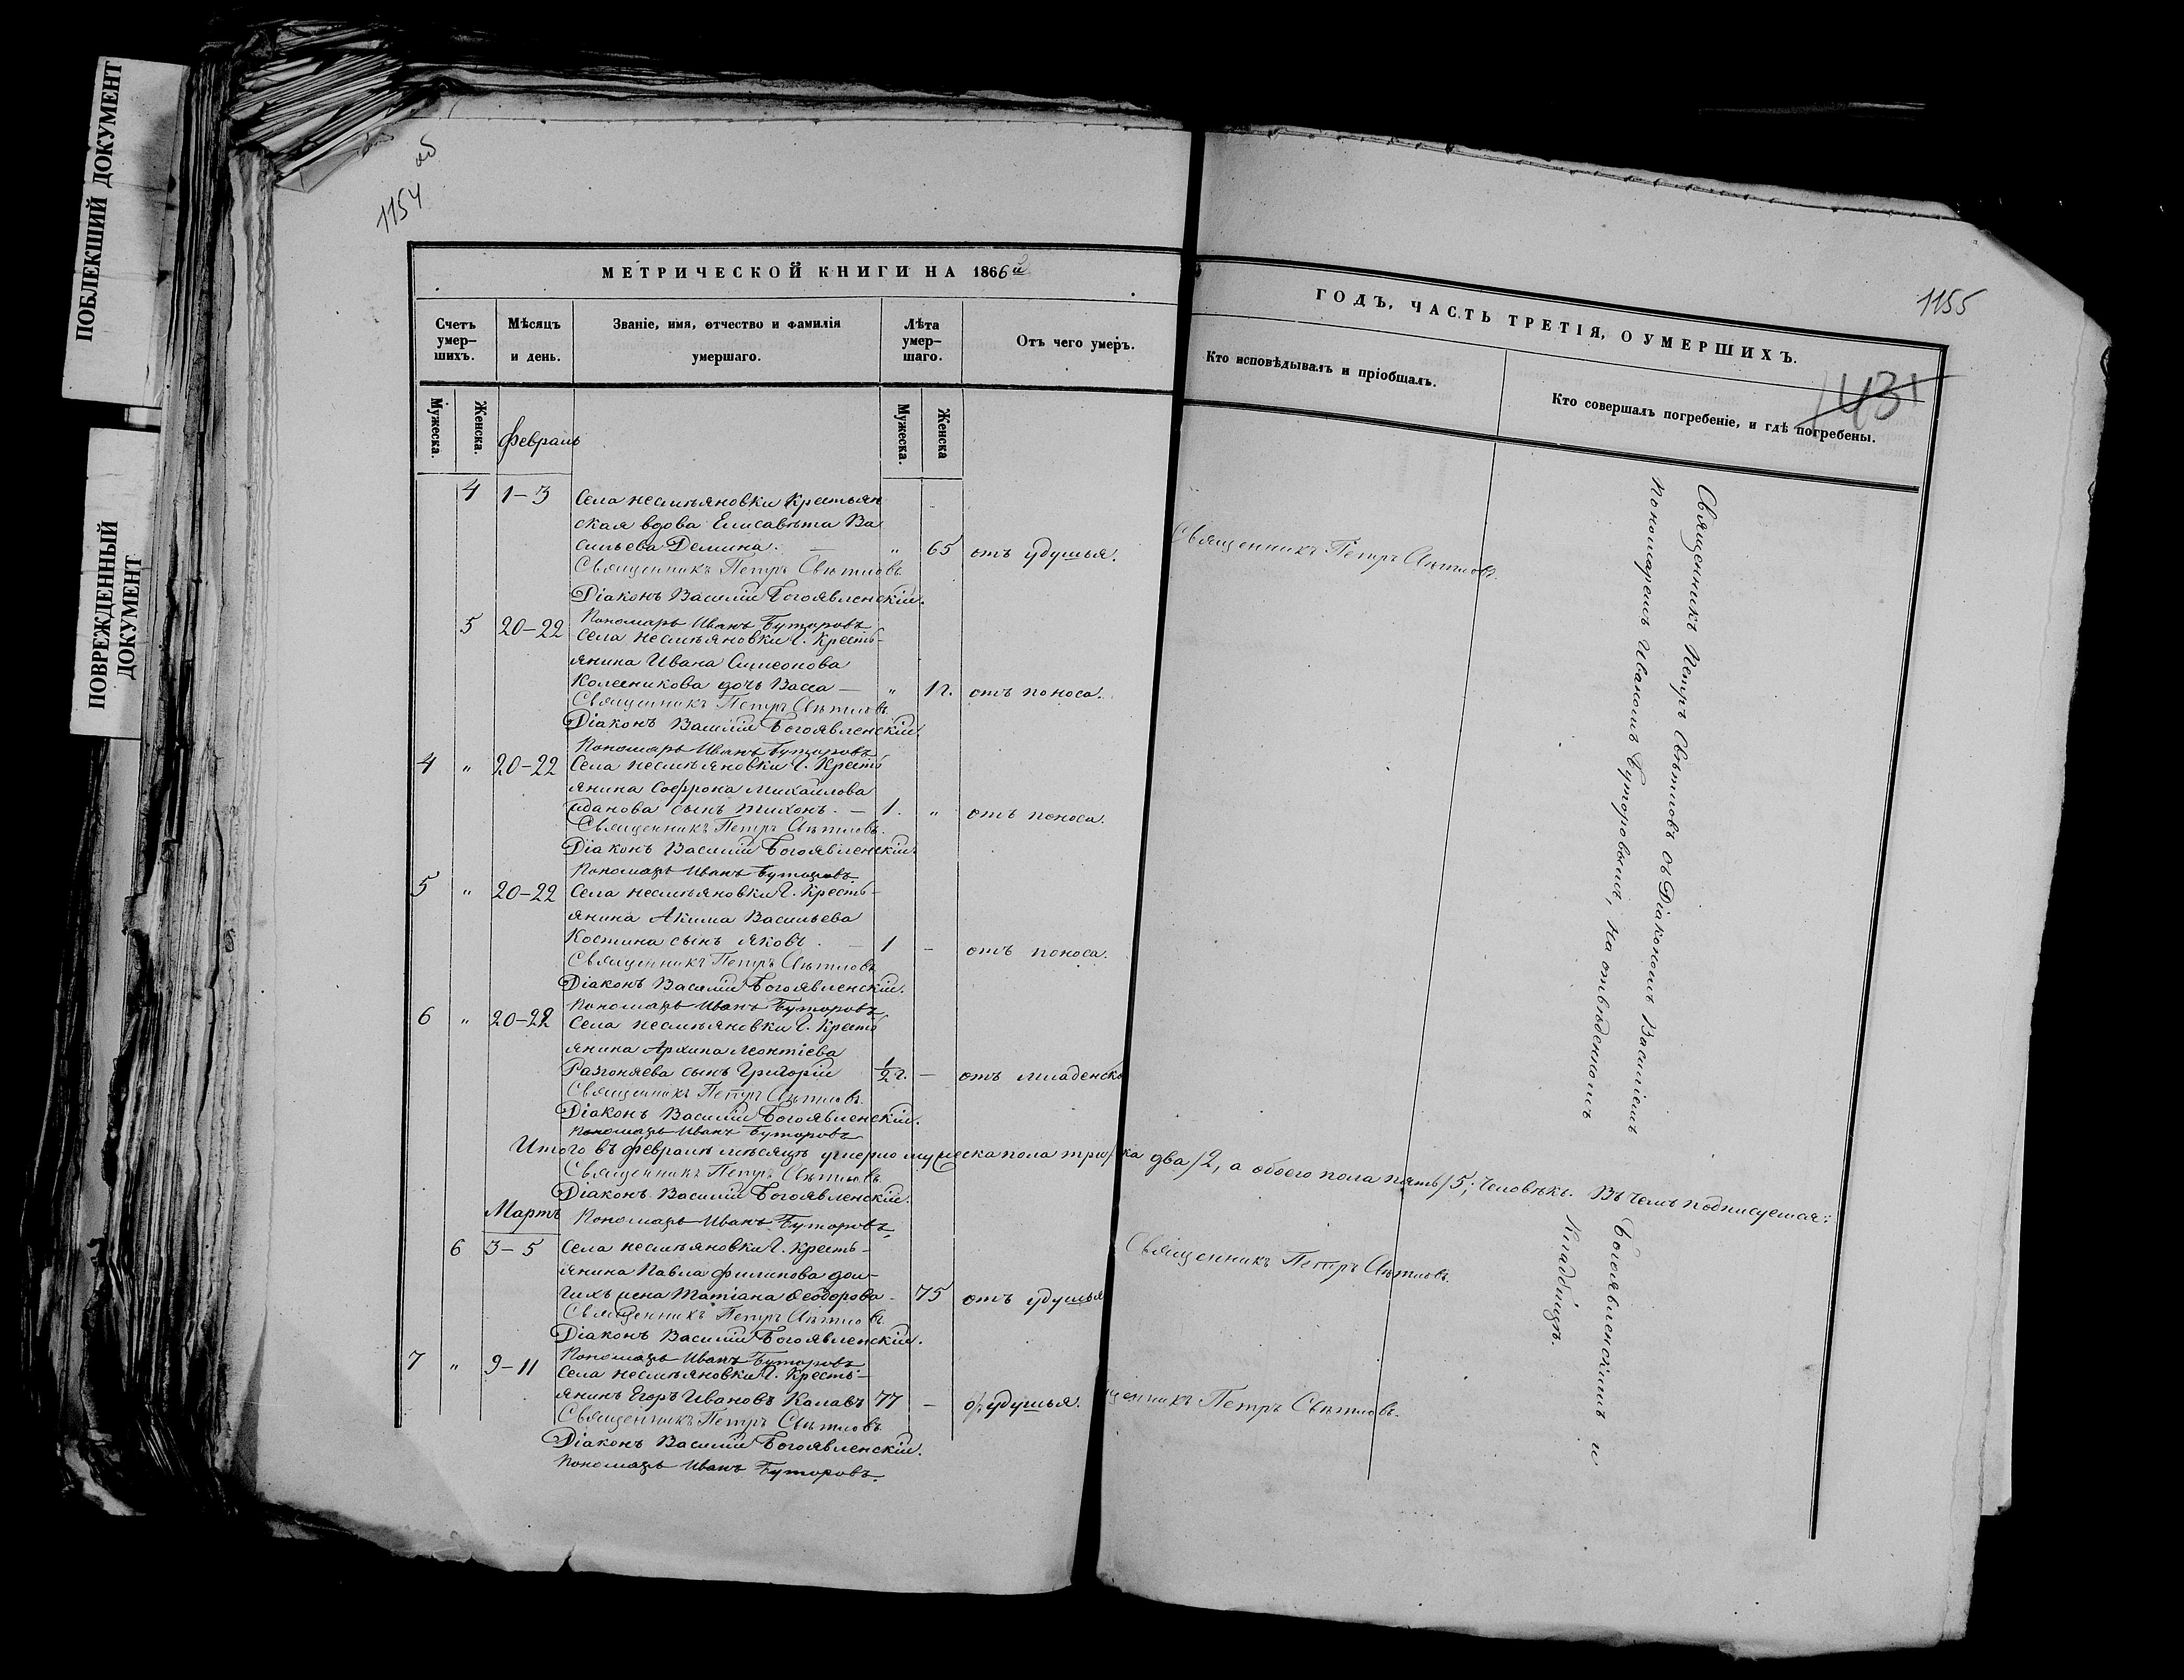 ПОБЛЕКШИЙ ДОКУМЕНТ
ПОВРЕЖДЕННЫЙ
ДОКУМЕНТ
1154 об
МЕТРИЧЕСКОЙ КНИГИ НА 1866й
Счетъ умер-шихъ.
Мѣсяцъ и день.
Званіе, имя, отчество и фамилія умершаго.
Лѣта умер-шаго.
Отъ чего умеръ.
Мужеска.
Женска.
Февраль
Мужеска.
Женска
4 1-3 Села несмѣяновки Крестьян
ская вдова Елисавѣта Ва
сильева Демина. — " 65 отъ удушья.
Священникъ Петръ Свѣтловъ
Діаконъ Василій Богоявленскій.
Пономарь Иванъ Буторовъ
5 20-22 Села несмѣяновки Г. Кресть-
янина Ивана Симеонова
Колесникова дочь Васса — " 1 г. отъ поноса.
Священникъ Петръ Свѣтловъ
Діаконъ Василій Богоявленскій
Пономарь Иванъ Буторовъ
4 " 20-22 Села несмѣяновки Г. Кресть
янина Софрона Михайлова
сынъ Тихонъ. — 1. " отъ поноса.
Священникъ Петръ Свѣтловъ.
Діаконъ Василій Богоявленскій
Пономарь Иванъ Буторовъ
5 " 20-22 Села несмѣяновки Г. Кресть-
янина Акима Васильева
Костина сынъ Яковъ. — 1 – отъ поноса.
Священникъ Петръ Свѣтловъ
Діаконъ Василій Богоявленскій.
Пономарь Иванъ Буторовъ
6 " 20-22 Села несмѣяновки Г. Кресть
янина Архипа Леонтіева
Разгоняева сынъ Григорій 1/2 г. – отъ младенско
Священникъ Петръ Свѣтловъ
Діаконъ Василій Богоявленскій.
Пономарь Иванъ Буторовъ
Итого въ февралѣ мѣсяцѣ умерло мужеска пола три/ ка два/2, а обоего пола пять/5; человѣкъ. Въ чемъ подписуемся:
Священникъ Петръ Свѣтловъ
Діаконъ Василій Богоявленскій.
Мартъ Пономарь Иванъ Буторовъ
6 3-5 Села несмѣяновки Г. Кресть-
янина Павла Филипова дол-
гихъ жена Татіана Ѳеодорова 75 отъ удушья
Священникъ Петръ Свѣтловъ
Діаконъ Василій Богоявленскій.
Пономарь Иванъ Буторовъ
7 " 9-11 Села несмѣяновки Г. Кресть-
янинъ Егоръ Ивановъ 77 – удушья.
Священникъ Петръ Свѣтловъ
Діаконъ Василій Богоявленскій.
Пономарь Иванъ Буторовъ.
1155
ГОДЪ, ЧАСТЬ ТРЕТІЯ, О УМЕРШИХЪ.
Кто исповѣдывалъ и пріобщалъ.
Кто совершалъ погребеніе, и гдѣ погребены.
Священникъ Петръ Свѣтловъ
Священникъ Петръ Свѣтловъ
щенникъ Петръ Свѣтловъ.
Священникъ Петръ Свѣтловъ съ Діакономъ Василіемъ Богоявленскимъ и
Пономаремъ Иваномъ Буторовымъ, на отведенномъ кладбищѣ.